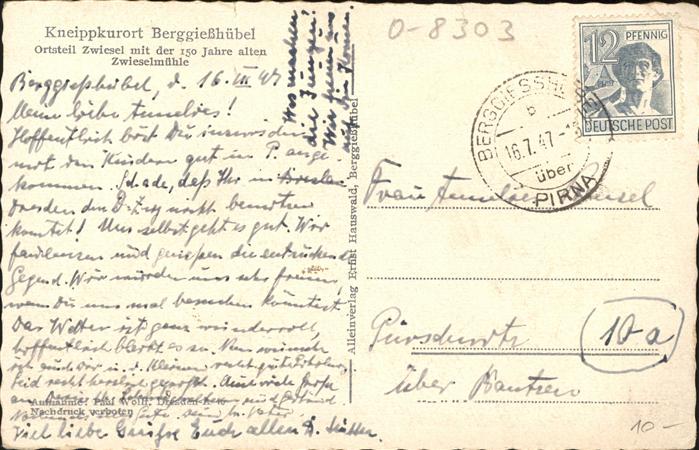 Kneippkurort Berggießhübel
Ortsteil Zwiesel mit der 150 Jahre alten
Zwieselmühle
Berggießhübel, d. 16. 47
Meine liebe Annelies!
Hoffentlich bist Du inzwischen
mit den Kindern gut in P. ange
kommen. Schade, daß Ihr in
Dresden den D-Zug nicht benutzen
konntet! Uns selbst geht es gut. Wir
faulenzen und genießen die entzückende
Gegend. Wir würden uns sehr freuen,
wenn Du uns mal besuchen könntest.
Das Wetter ist ganz wundervoll,
hoffentlich bleibt es so. Nun wünsche
ich und u. d. Kleinen recht gute
Seid recht herzlich gegrüßt. Auch viele Grüße
an
Viel liebe Grüße Euch allen
Aufnahme: Paul Wolff, Dresden
Nachdruck verboten
Was machen
die Jungen?
Wir freuen uns
auf
Alleinverlag Ernst Hauswald, Berggießhübel
0-8303
12 PFENNIG
DEUTSCHE POST
BERGGIESSHÜBEL
b
16.7.47
über
PIRNA
Frau
Purschwitz
über Bautzen
10a
10-